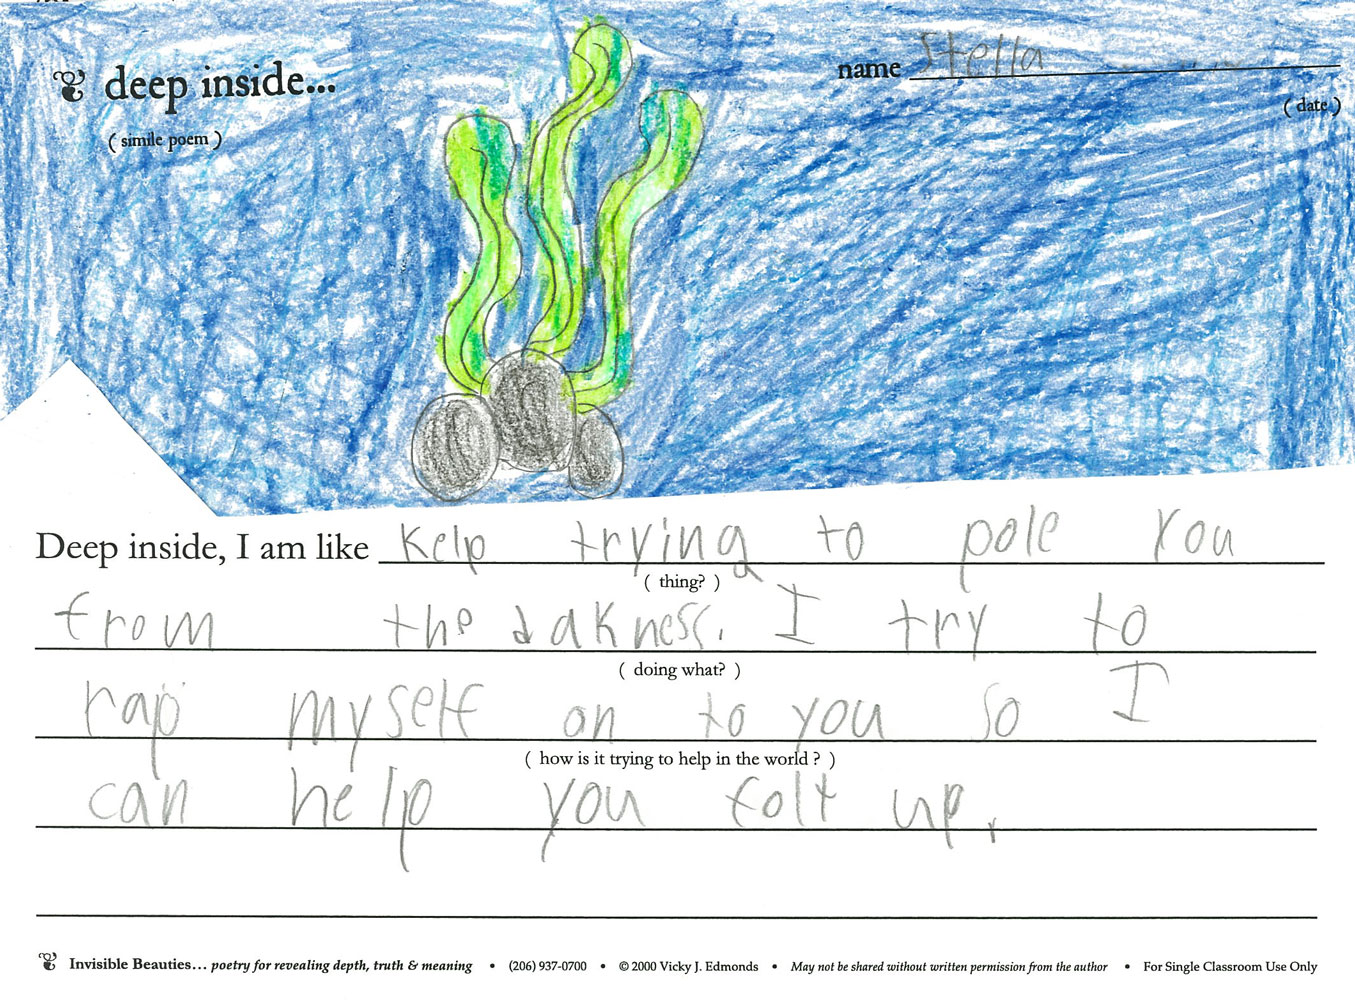 deep inside...
name Stella
( date )
( simile poem )
Deep inside, I am like Kelp trying to pole You
( thing? )
from the dakness. I try to
( doing what? )
rap myself on to you so I
( how is it trying to help in the world ? )
can help you folt up.
Invisible Beauties... poetry for revealing depth, truth & meaning • (206) 937-0700 • © 2000 Vicky J. Edmonds • May not be shared without written permission from the author • For Single Classroom Use Only